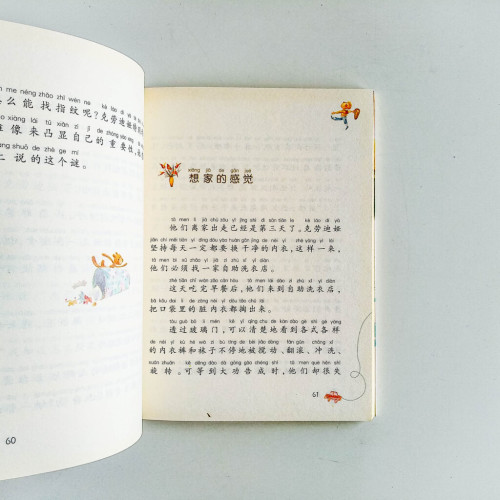 么能找指纹呢？克劳迪娅
像来凸显自己的重要性，
上说的这个谜。
60
xiǎng jiā de gǎn jué
想家的感觉
tā men lí jiā chū zǒu yǐ jīng shì dì sān tiān le kè láo dí yà
他们离家出走已经是第三天了。克劳迪娅
jiān chí měi tiān yí dìng dōu yào huàn gān jìng de nèi yī zhè yàng yì lái
坚持每天一定都要换干净的内衣，这样一来，
tā men bì xū zhǎo yì jiā zì zhù xǐ yī diàn
他们必须找一家自助洗衣店。
zhè tiān chī wán zǎo cān hòu tā men lái dào zì zhù xǐ yī diàn
这天吃完早餐后，他们来到自助洗衣店，
bǎ kǒu dai lǐ de zāng nèi yī dōu tāo chū lái
把口袋里的脏内衣都掏出来。
tòu guò bō li mén kě yǐ qīng chu de kàn dào gè shì gè yàng
透过玻璃门，可以清楚地看到各式各样
de nèi yī kù hé wà zi bù tíng de bèi jiǎo dòng fān gǔn chōng xǐ
的内衣裤和袜子不停地被搅动、翻滚、冲洗、
xuán zhuǎn kě děng dào dà gōng gào chéng shí tā men què hěn shī
旋转。可等到大功告成时，他们却很失
61